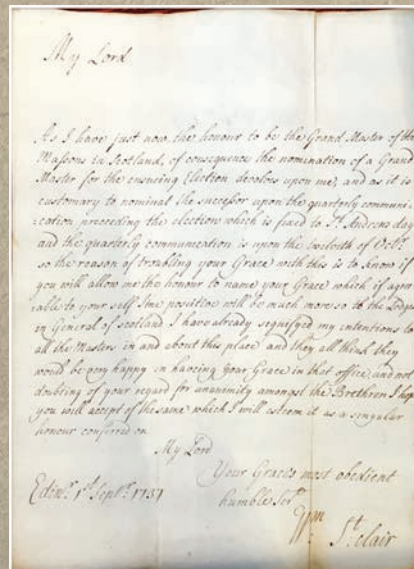 My Lord
As I have just now the honour to be the Grand Master of the
Massons in Scotland, of consequence the nomination of a Grand
Master for the ensuing Election devolves upon me, and as it is
customary to nominat the successor upon the quarterly communi
:cation preceeding the election which is fixed to St. Andrews day
and the quarterly communication is upon the twelvth of Octr.
so the reason of troubling your Grace with this is to know if
you will allow me the honour to name your Grace which if agree
:able to your self I'me possitive will be much more so to the Lodges
in General of Scotland I have already signifyed my intentions to
all the Masters in and about this place and they all think they
would be very happy in haveing your Grace in that office, and not
doubting of your regard for unanimity amongst the Brethren I hope
you will accept of the same which I will esteem it as a singular
honour conferred on
My Lord
Your Graces most obedient
humble Sert.
Edinr. 1st. Septr. 1737
Wm. St. clair